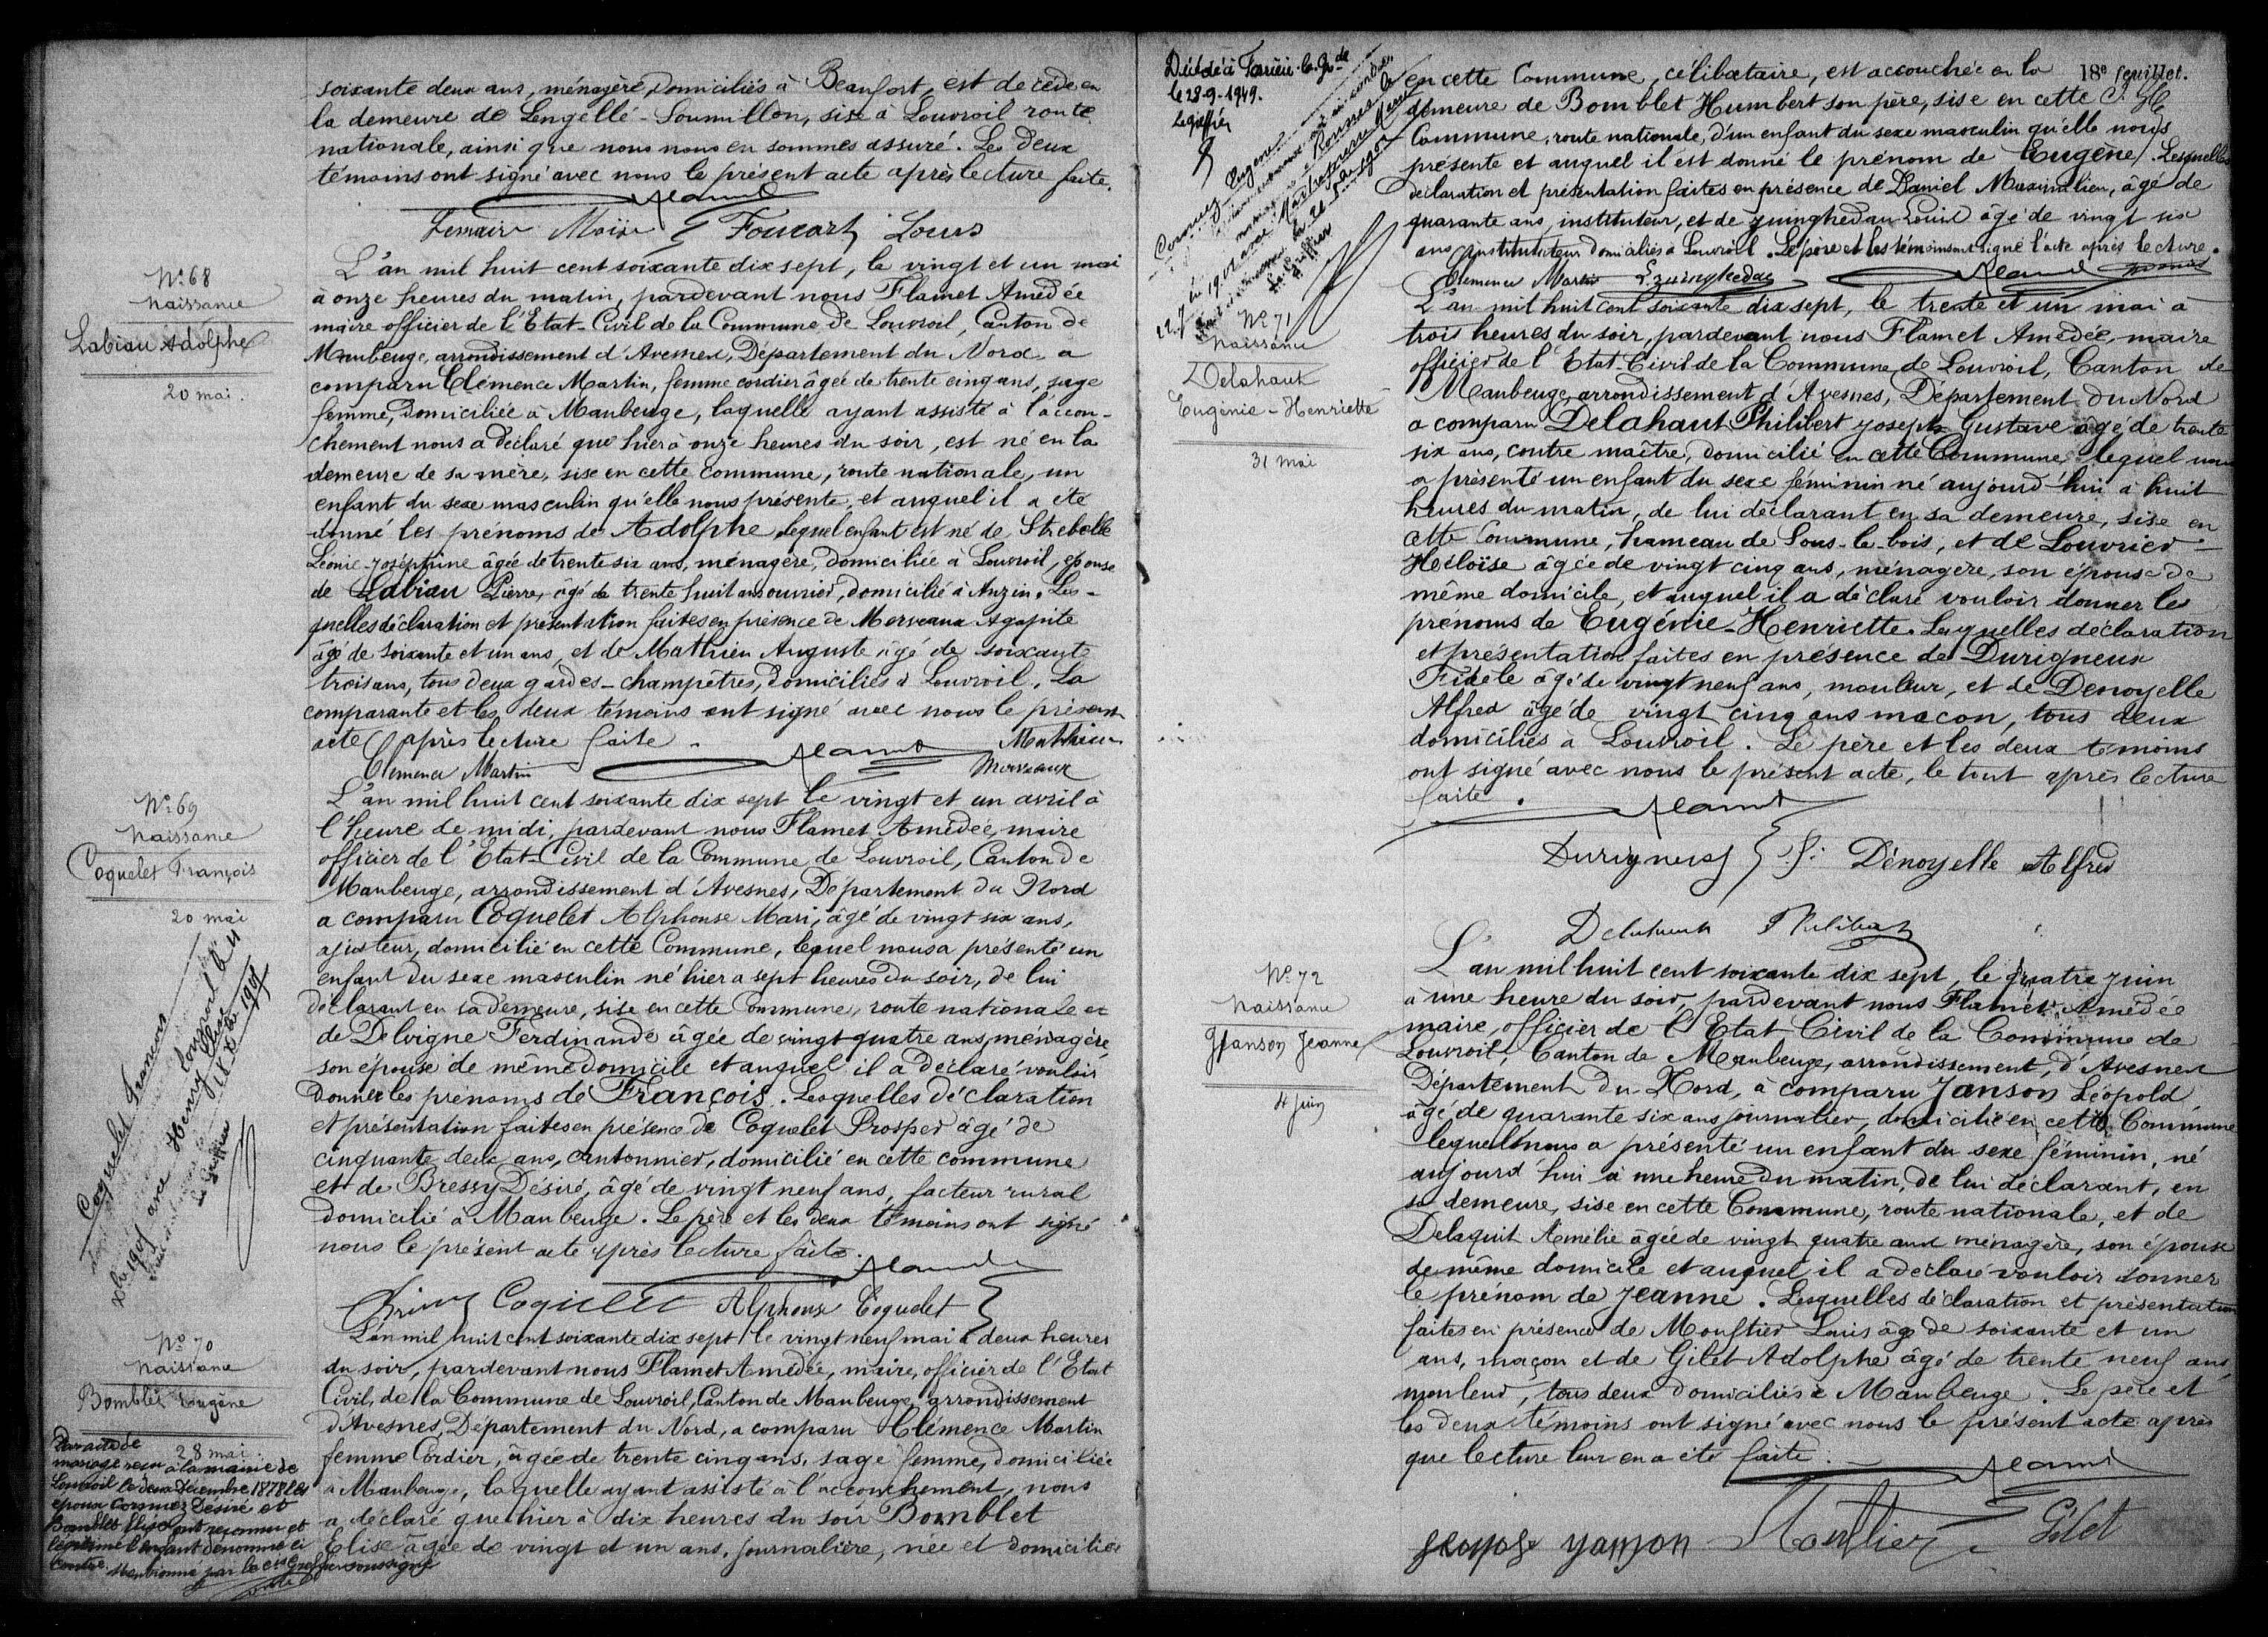 soixante deux ans, ménagère, domiciliés à Beaufort, est décédé en
la demeure de Lengellé-Soumillon, sise à Louvroil route
nationale, ainsi que nous nous en sommes assuré. Les deux
témoins ont signé avec nous le présent acte après lecture faite.
Foucart Louis
N° 68
Naissance
Labiau Adolphe
20 mai.
L'an mil huit cent soixante dix sept, le vingt et un mai
à onze heures du matin, pardevant nous Flamet Amédée
maire officier de l'Etat-Civil de la Commune de Louvroil, Canton de
Maubeuge, arrondissement d'Avesnes, Département du Nord, a
comparu Clémence Martin, femme cordier âgée de trente cinq ans, sage
femme, domiciliée à Maubeuge, laquelle ayant assisté à l'accou-
chement nous a déclaré que hier à onze heures du soir, est né en la
demeure de sa mère, sise en cette commune, route nationale, un
enfant du sexe masculin qu'elle nous présente, et auquel il a été
donné les prénoms de Adolphe lequel enfant est né de Strebelle
Léonie-Joséphine âgée de trente six ans, ménagère, domiciliée à Louvroil, épouse
de Labiau Pierre, âgé de trente huit ans ouvrier, domicilié à Anzin. Les-
quelles déclaration et présentation faites en présence de Merveaux Agapite
âgé de soixante et un ans, et de Mathieu Auguste âgé de soixante
trois ans, tous deux gardes-champêtres, domiciliés à Louvroil. La
comparante et les deux témoins ont signé avec nous le présent
acte après lecture faite.
Mathieu
Clemence Martin
Merveaux
N° 69
Naissance
Coquelet François
20 mai
L'an mil huit cent soixante dix sept le vingt et un avril à
l'heure de midi, pardevant nous Flamet Amédée, maire
officier de l'Etat-Civil de la Commune de Louvroil, Canton de
Maubeuge, arrondissement d'Avesnes, Département du Nord
a comparu Coquelet Alphonse Mari, âgé de vingt six ans,
ajusteur, domicilié en cette Commune, lequel nous a présenté un
enfant du sexe masculin né hier a sept heures du soir, de lui
déclarant en sa demeure, sise en cette Commune, route nationale et
de Delvigne Ferdinande âgée de vingt-quatre ans, ménagère,
son épouse de même domicile et auquel il a déclaré vouloir
donner les prénoms de François. Lesquelles déclaration
et présentation faites en présence de Coquelet Prosper âgé de
cinquante deux ans, cantonnier, domicilié en cette commune
et de Bressy Désiré, âgé de vingt neuf ans, facteur rural
domicilié à Maubeuge. Le père et les deux témoins ont signé
nous le présent acte après lecture faite.
Coquelet François
1905 avec Henry Elise
le Greffier
Coquelet Alphonse Coquelet
N° 70
Naissance
Bomblet Eugène
28 mai.
Par acte de
mariage reçu à la mairie de
Louvroil le deux Décembre 1878 les
époux Cornuez Désiré et
Bomblet Elise ont reconnu et
légitimé l'enfant dénommé ci
contre. Mentionné par le Greffier soussigné
L'an mil huit cent soixante dix sept le vingt neuf mai à deux heures
du soir, pardevant nous Flamet Amédée, maire, officier de l'Etat
Civil, de la Commune de Louvroil, Canton de Maubeuge, arrondissement
d'Avesnes, Département du Nord, a comparu Clémence Martin
femme Cordier, âgée de trente cinq ans, sage femme, domiciliée
à Maubeuge, laquelle ayant assisté à l'accouchement, nous
a déclaré que hier à dix heures du soir Bomblet
Elise âgée de vingt et un ans, journalière, née et domiciliée
18e feuillet.
Décédé à
le 28-9-1949.
Le greffier
Cornuez Eugène
le Greffier
en cette Commune, célibataire, est accouchée en la
demeure de Bomblet Humbert son père, sise en cette
Commune, route nationale, d'un enfant du sexe masculin qu'elle nous
présente et auquel il est donné le prénom de Eugène. Lesquelles
déclaration et présentation faites en présence de Daniel Maximilien, âgé de
quarante ans, instituteur, et de Zuinghedau Louis âgé de vingt six
ans instituteur domiciliés à Louvroil. Le père et les témoins ont signé l'acte après lecture.
Clemence Martin L. Zuinghedau
N° 71
Naissance
Delahaut
Eugénie-Henriette
31 mai
L'an mil huit cent soixante dix sept, le trente et un mai à
trois heures du soir, pardevant nous Flamet Amédée, maire
officier de l'Etat-Civil de la Commune de Louvroil, Canton de
Maubeuge, arrondissement d'Avesnes, Département du Nord
a comparu Delahaut Philibert Joseph Gustave âgé de trente
six ans, contre maître, domicilié en cette Commune, lequel nous
a présenté un enfant du sexe féminin né aujourd'hui à huit
heures du matin, de lui déclarant en sa demeure, sise en
cette Commune, hameau de Sous-le-bois, et de Louvrier
Héloïse âgée de vingt cinq ans, ménagère, son épouse de
même domicile, et auquel il a déclaré vouloir donner les
prénoms de Eugénie-Henriette. Lesquelles déclaration
et présentation faites en présence de Durigneux
Fidèle âgé de vingt neuf ans, mouleur, et de Denoyelle
Alfred âgé de vingt cinq ans maçon, tous deux
domiciliés à Louvroil. Le père et les deux témoins
ont signé avec nous le présent acte, le tout après lecture
faite.
Durigneux f. Dénoyelle Alfred
Delahaut Philibert
N° 72
Naissance
Janson Jeanne
4 juin
L'an mil huit cent soixante dix sept, le quatre juin
à une heure du soir, pardevant nous Flamet Amédée
maire, officier de l'Etat Civil de la Commune de
Louvroil, Canton de Maubeuge, arrondissement, d'Avesnes
Département du Nord, a comparu Janson Léopold
âgé de quarante six ans journalier, domicilié en cette Commune
lequel nous a présenté un enfant du sexe féminin, né
aujourd'hui à une heure du matin, de lui déclarant, en
sa demeure, sise en cette Commune, route nationale, et de
Delaquit Amélie âgée de vingt quatre ans ménagère, son épouse
de même domicile et auquel il a déclaré vouloir donner
le prénom de Jeanne. Lesquelles déclaration et présentation
faites en présence de Moustier Louis âgé de soixante et un
ans, maçon et de Gilet Adolphe âgé de trente neuf ans,
mouleur, tous deux domiciliés à Maubeuge. Le père et
les deux témoins ont signé avec nous le présent acte après
que lecture leur en a été faite.
Moustier Gilet